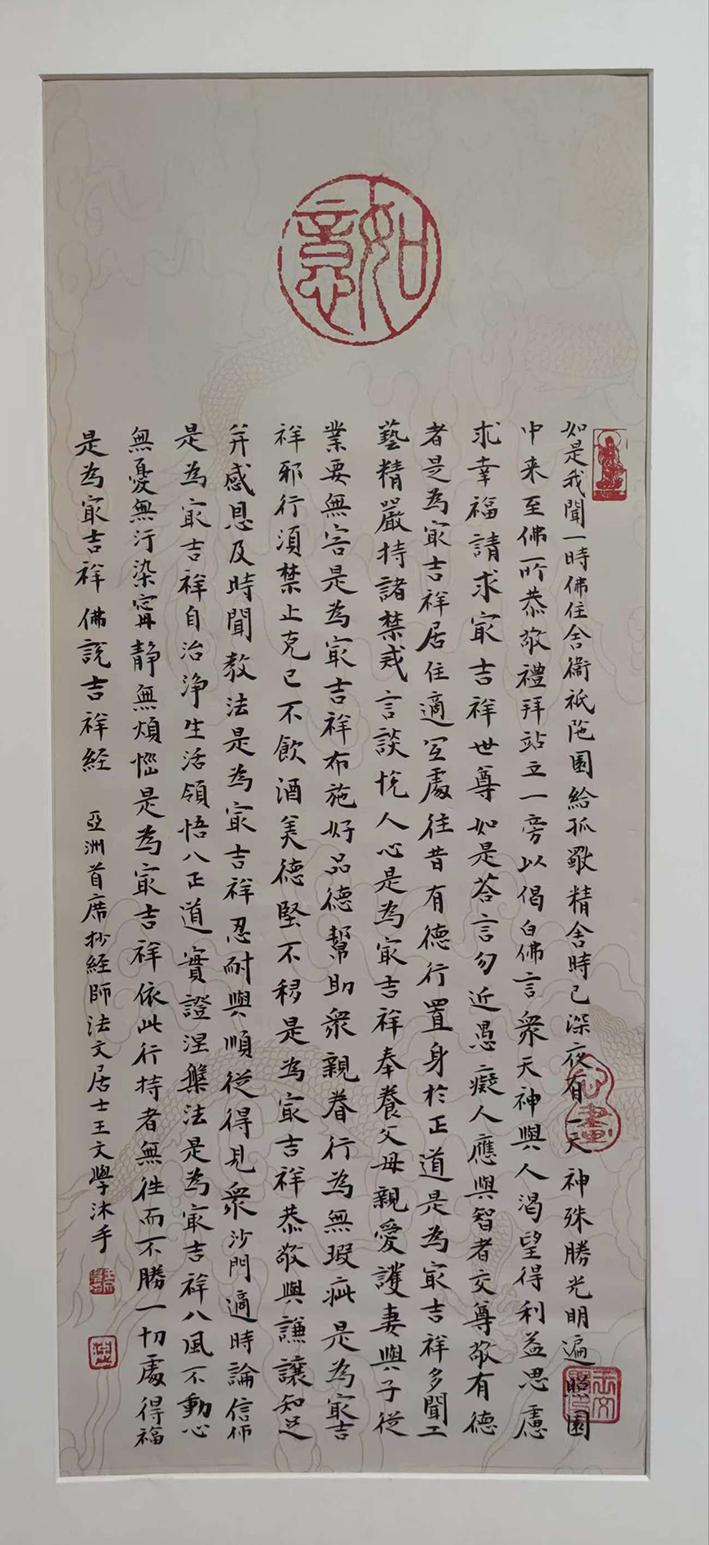 如意
如是我聞一時佛住舍衛祇陀園給孤獨精舍時已深夜有一天神殊勝光明遍照園
中来至佛所恭敬禮拜站立一旁以偈白佛言衆天神與人渴望得利益思慮
求幸福請求冣吉祥世尊如是荅言勿近愚癡人應與智者交尊敬有德
者是為冣吉祥居住適宜處往昔有德行置身於正道是為冣吉祥多聞工
藝精嚴持諸禁戒言談悦人心是為冣吉祥奉養父母親愛護妻與子從
業要無害是為冣吉祥布施好品德幫助衆親眷行為無瑕疵是為冣吉
祥邪行須禁止克己不飲酒美德堅不移是為冣吉祥恭敬與謙讓知足
并感恩及時聞教法是為冣吉祥忍耐與順從得見衆沙門適時論信仰
是為冣吉祥自治浄生活領悟八正道實證涅槃法是為冣吉祥八風不動心
無憂無污染寧静無煩惱是為冣吉祥依此行持者無往而不勝一切處得福
是為冣吉祥佛説吉祥経
亞洲首席抄経師法文居士王文學沐手